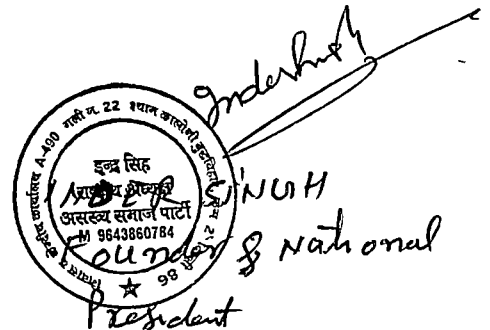 केन्द्रीय कार्यालय A-490 गली न. 22 श्याम कालोनी बुद्धविहार
86
इन्द्र सिंह
राष्ट्रीय अध्यक्ष
असंख्य समाज पार्टी
M 9643860784
INDER SINGH
Founder & National
President